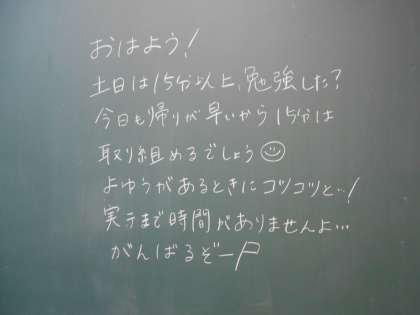 おはよう!
土日は15分以上、勉強した?
今日も帰りが早いから15分は
取り組めるでしょう☺
よゆうがあるときにコツコツと…!
実テまで時間がありませんよ…
がんばるぞー